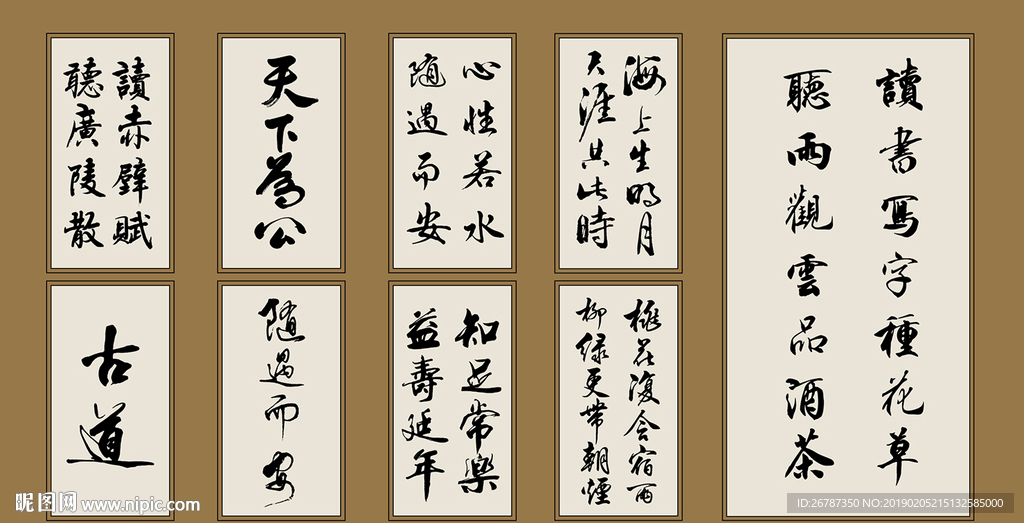 讀赤壁賦
聽廣陵散
天下為公
心性若水
隨遇而安
海上生明月
天涯共此時
讀書寫字種花草
聽雨觀雲品酒茶
古道
隨遇而安
知足常樂
益壽延年
桃花復含宿雨
柳绿更帶朝煙
昵图网 www.nipic.com
ID:26787350 NO:20190205215132585000